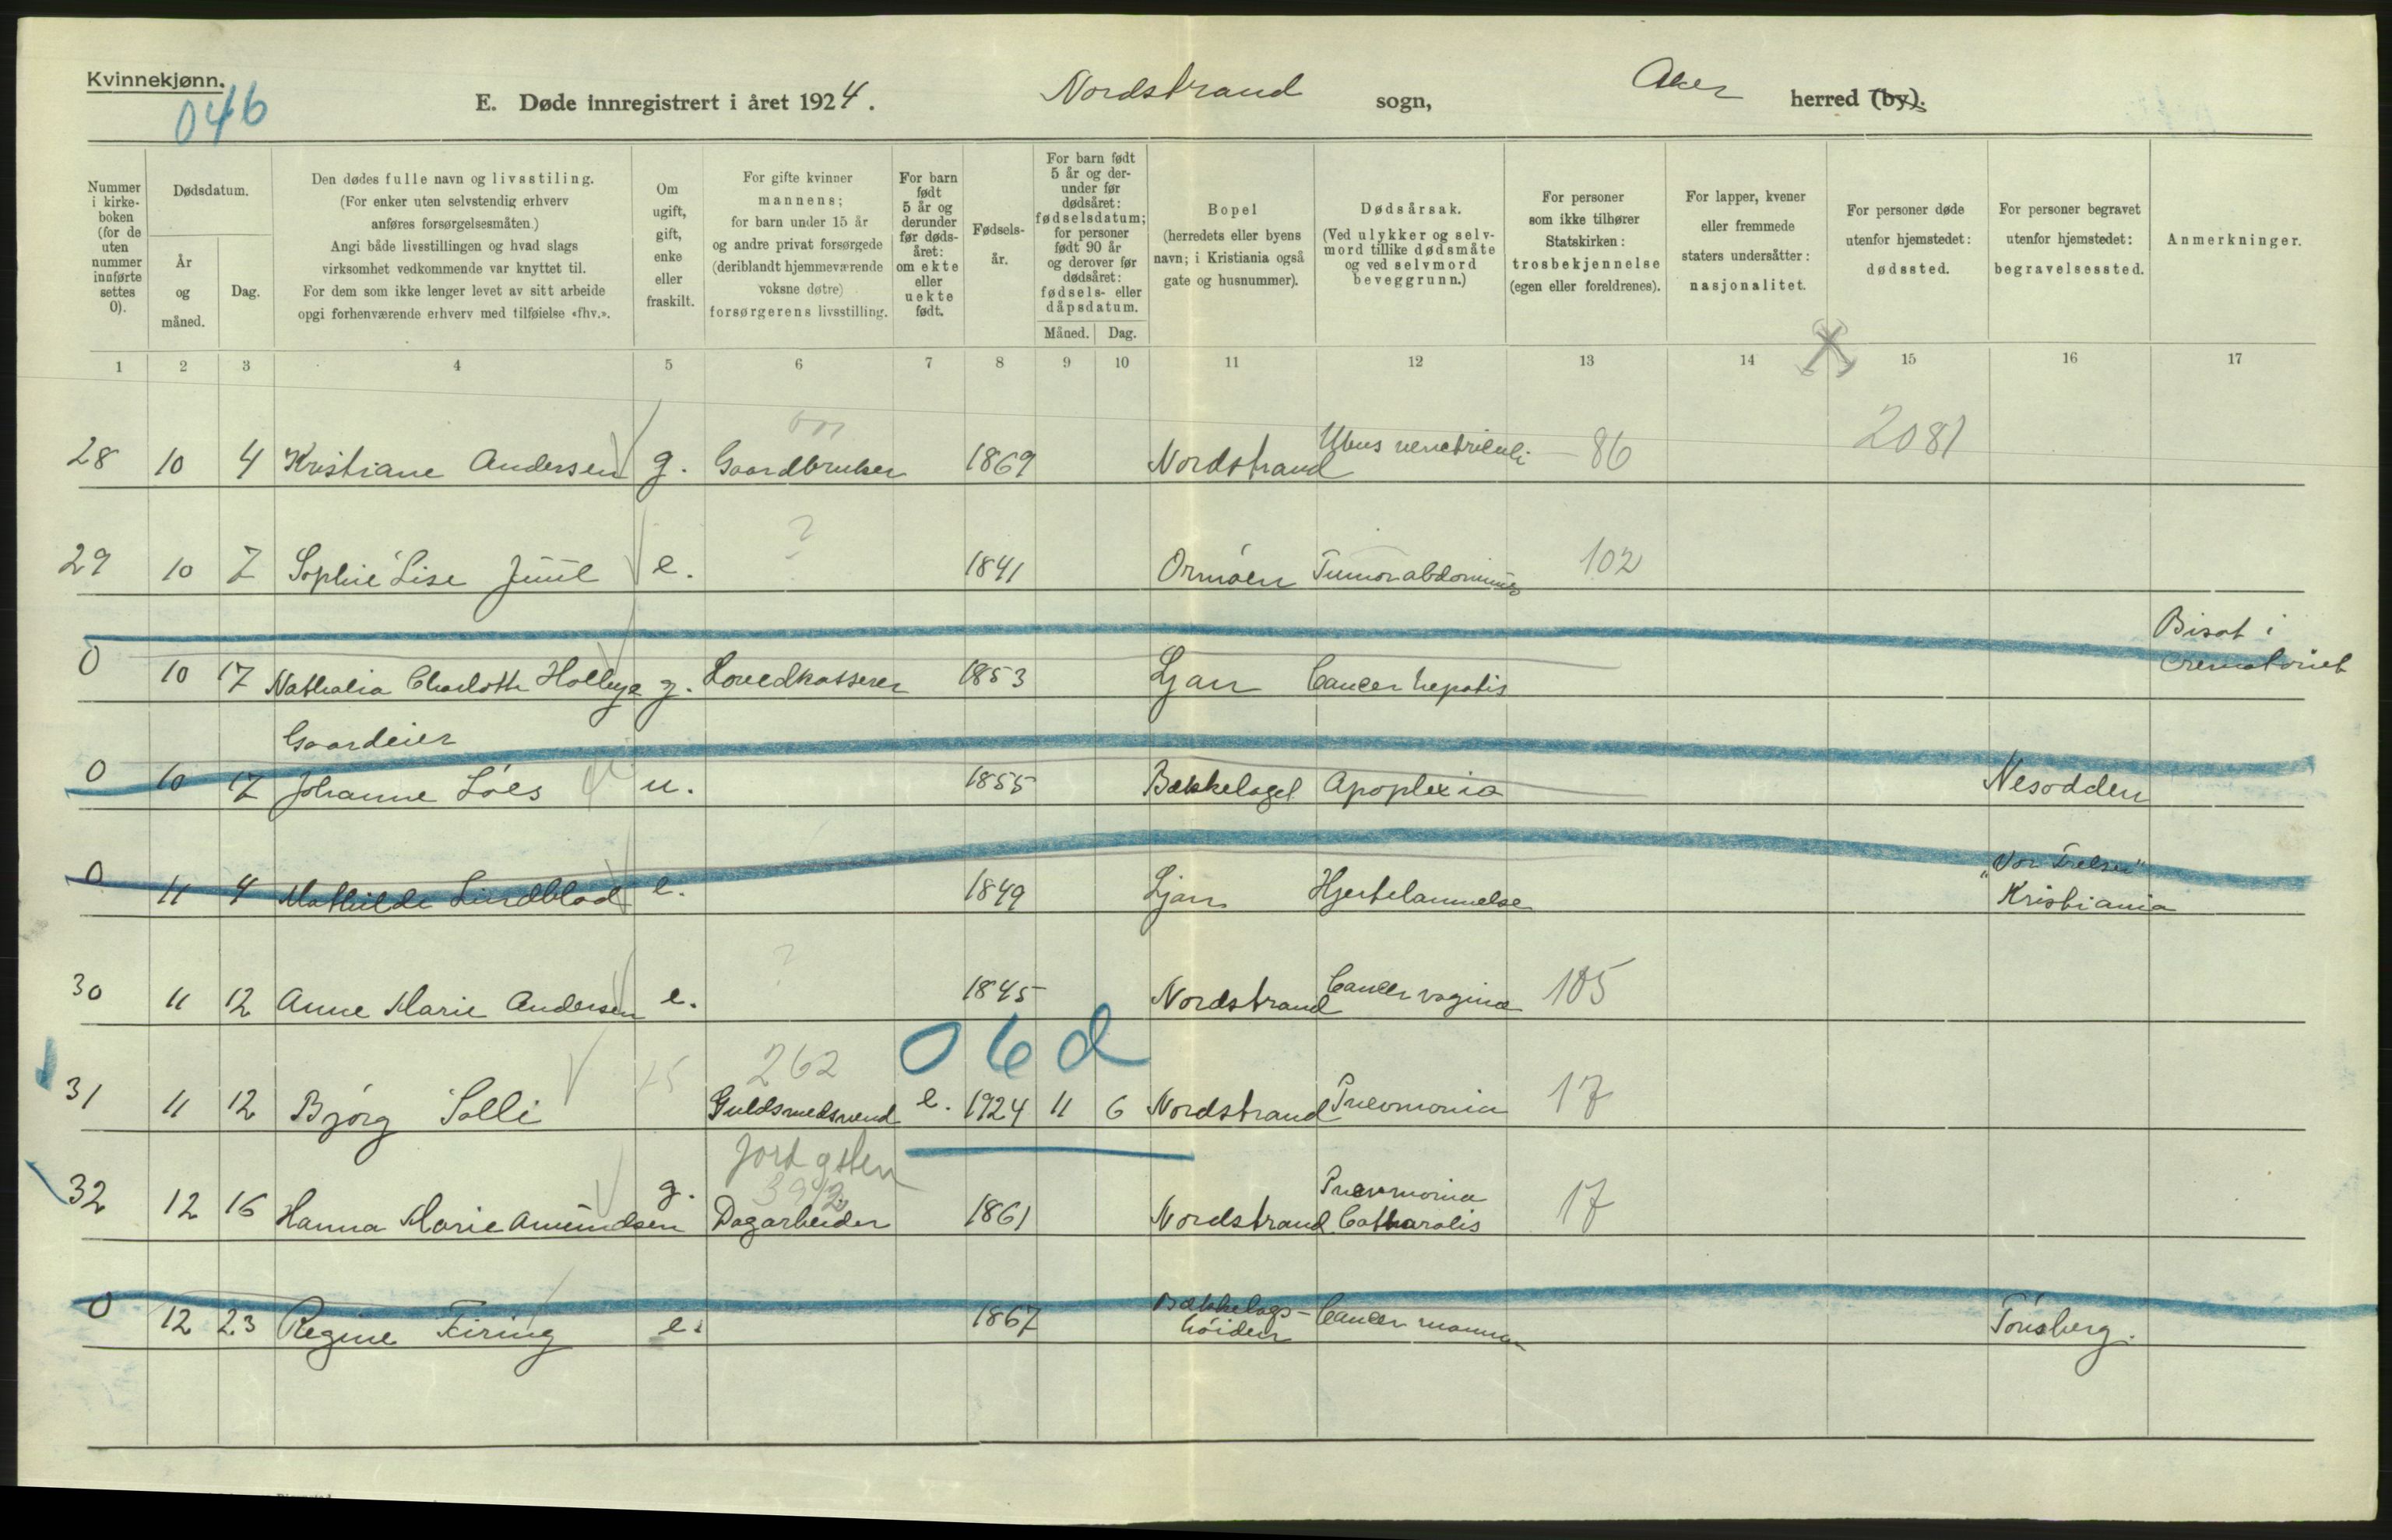 Kvinnekjønn.
046
E. Døde innregistrert i året 1924.
Nordstrand sogn,
Aker herred (by).
Nummer i kirkeboken (for de uten nummer innførte settes 0).
Dødsdatum.
År og måned.
Dag.
Den dødes fulle navn og livsstiling.
(For enker uten selvstendig erhverv
anføres forsørgelsesmåten.)
Angi både livesstillingen og hvad slags
virksomhet vedkommende var knyttet til.
For dem som ikke lenger levet av sitt arbeide
opgi forhenværende erhverv med tilføielse «fhv.».
Om ugift, gift, enke eller fraskilt.
For gifte kvinner
mannens;
for barn under 15 år
og andre privat forsørgede
(deriblandt hjemmeværende
voksne døtre)
forsørgerens livsstilling.
For barn født 5 år og derunder før dødsåret: om ekte eller uekte født.
Fødselsår.
For barn født 5 år og derunder før dødsåret: fødselsdatum; for personer født 90 år og derover før dødsåret: fødsels- eller dåpsdatum.
Måned. Dag.
Bopel
(herredets eller byens
navn; i Kristiania også
gate og husnummer).
Dødsårsak.
(Ved ulykker og selvmord tillike dødsmåte
og ved selvmord
beveggrunn.)
For personer
som ikke tilhører
Statskirken:
trosbekjennelse
(egen eller foreldrenes).
For lapper, kvener
eller fremmede
staters undersåtter:
nasjonalitet.
For personer døde
utenfor hjemstedet:
dødssted.
For personer begravet
utenfor hjemstedet:
begravelsessted.
Anmerkninger.
1 2 3 4 5 6 7 8 9 10 11 12 13 14 15 16 17
28 10 4 Kristiane Andersen g. Gaardbruker 1869 Nordstrand Ulcus ventriculi 86 2081
29 10 7 Sophie Lise Juul e. ? 1841 Ormöen Tumor abdominis 102
Bisat i
0 10 17 Nathalia Charlotte g. 1853 Ljan Cancer hepatis Crematoriet
Gaardeier
0 10 17 Johanne Löes u. 1855 Bækkelaget Apoplexia Nesodden
"Vor Frelser"
0 11 4 Mathilde Lindblad e. 1849 Ljan Hjertelammelse Kristiania
30 11 12 Anne Marie Andersen e. ? 1845 Nordstrand Cancer vagina 105
262 06d
31 11 12 Bjørg Solli Guldsmedsvend e. 1924 11 6 Nordstrand Pneomonia 17
Jord
32 12 16 Hanna Marie Amundsen g. Dagarbeider 1861 Nordstrand Pneomonia Catharalis 17
0 12 23 Regine Firing e. 1867 Bækkelagshöiden Cancer mamma Tönsberg.